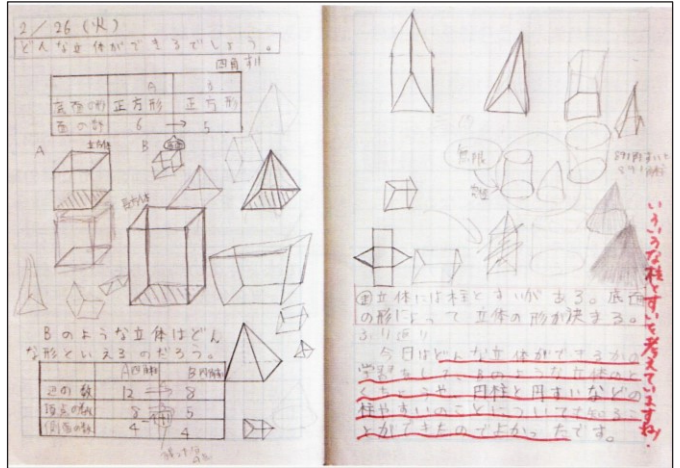 2/26(火)
どんな立体ができるでしょう。
四角すい
A B
底面の形 正方形 正方形
面の数 6 → 5
A 立方体 B
直方体
Bのような立体はどん
な形といえるのだろう。
A四角柱 B四角すい
辺の数 12 8
頂点の数 8 5
側面の数 4 4
無限
㋮立体には柱とすいがある。底面
の形によって立体の形が決まる。
ふり返り
今日はどんな立体ができるかの
学習をして、Bのような立体のと
くちょうや、円柱と円すいなどの
柱やすいのことについても知るこ
とができたのでよかったです。
いろいろな柱とすいを考えていますね!